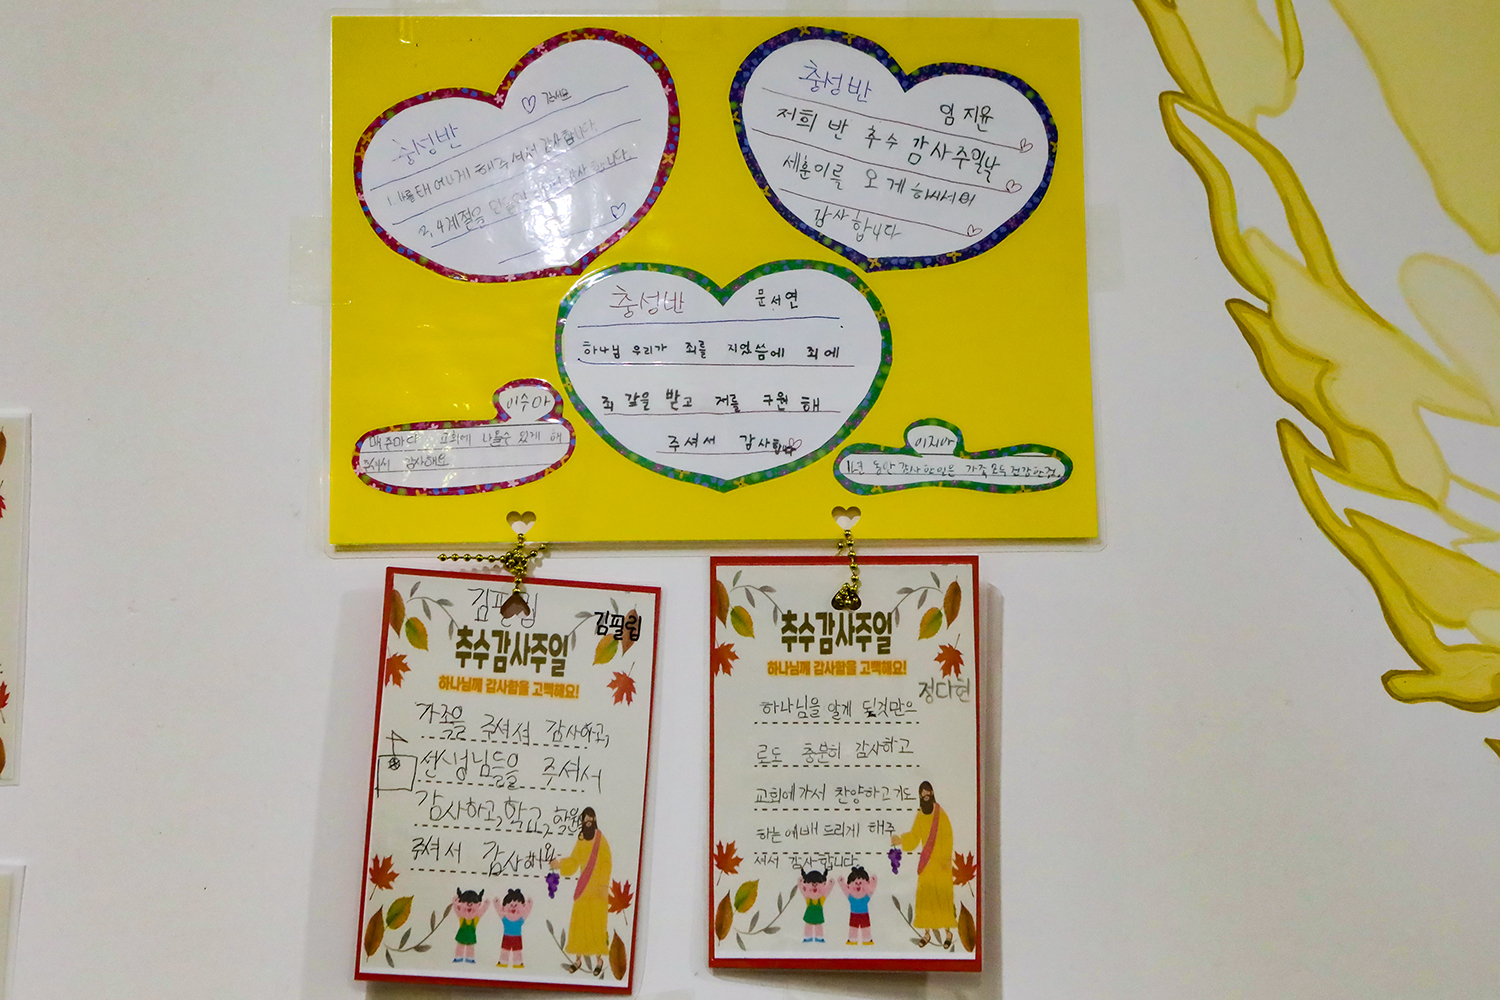 충성반
1, 나를 태어나게 해주셔서 감사합니다.
2, 4계절을 감사합니다.
충성반
임지윤
저희 반 추수 감사주일날
세훈이를 오게 하셔서
감사합니다
충성반 문서연
하나님 우리가 죄를 지었씀에 죄에
죄 값을 받고 저를 구원 해
주셔서 감사합니다
이수아
매주마다 교회에 나올수 있게 해
주셔서 감사해요
이지아
1년 동안 감사한일은 가족 모두 건강한것.
김필립
김필립
추수감사주일
하나님께 감사함을 고백해요!
가족을 주셔서 감사하고,
선생님들을 주셔서
감사하고, 학교, 학원
주셔서 감사해요
추수감사주일
하나님께 감사함을 고백해요!
정다현
하나님을 알게 된것만으
로도 충분히 감사하고
교회에 가서 찬양하고 기도
하는 예배 드리게 해주
셔서 감사합니다.